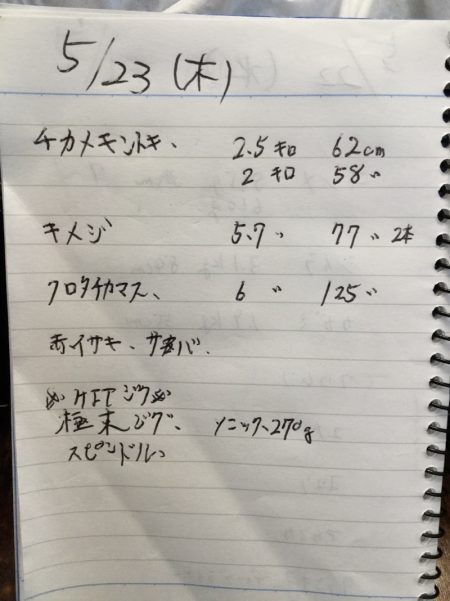 5/23 (木)
チカメキントキ、 2.5 キロ 62cm
2 キロ 58〃
キメジ 5.7 〃 77 〃 2本
クロタチカマス、 6 〃 125〃
赤イサキ、サバ、
ジグ
極末ジグ、 ソニック、270g
スピンドル